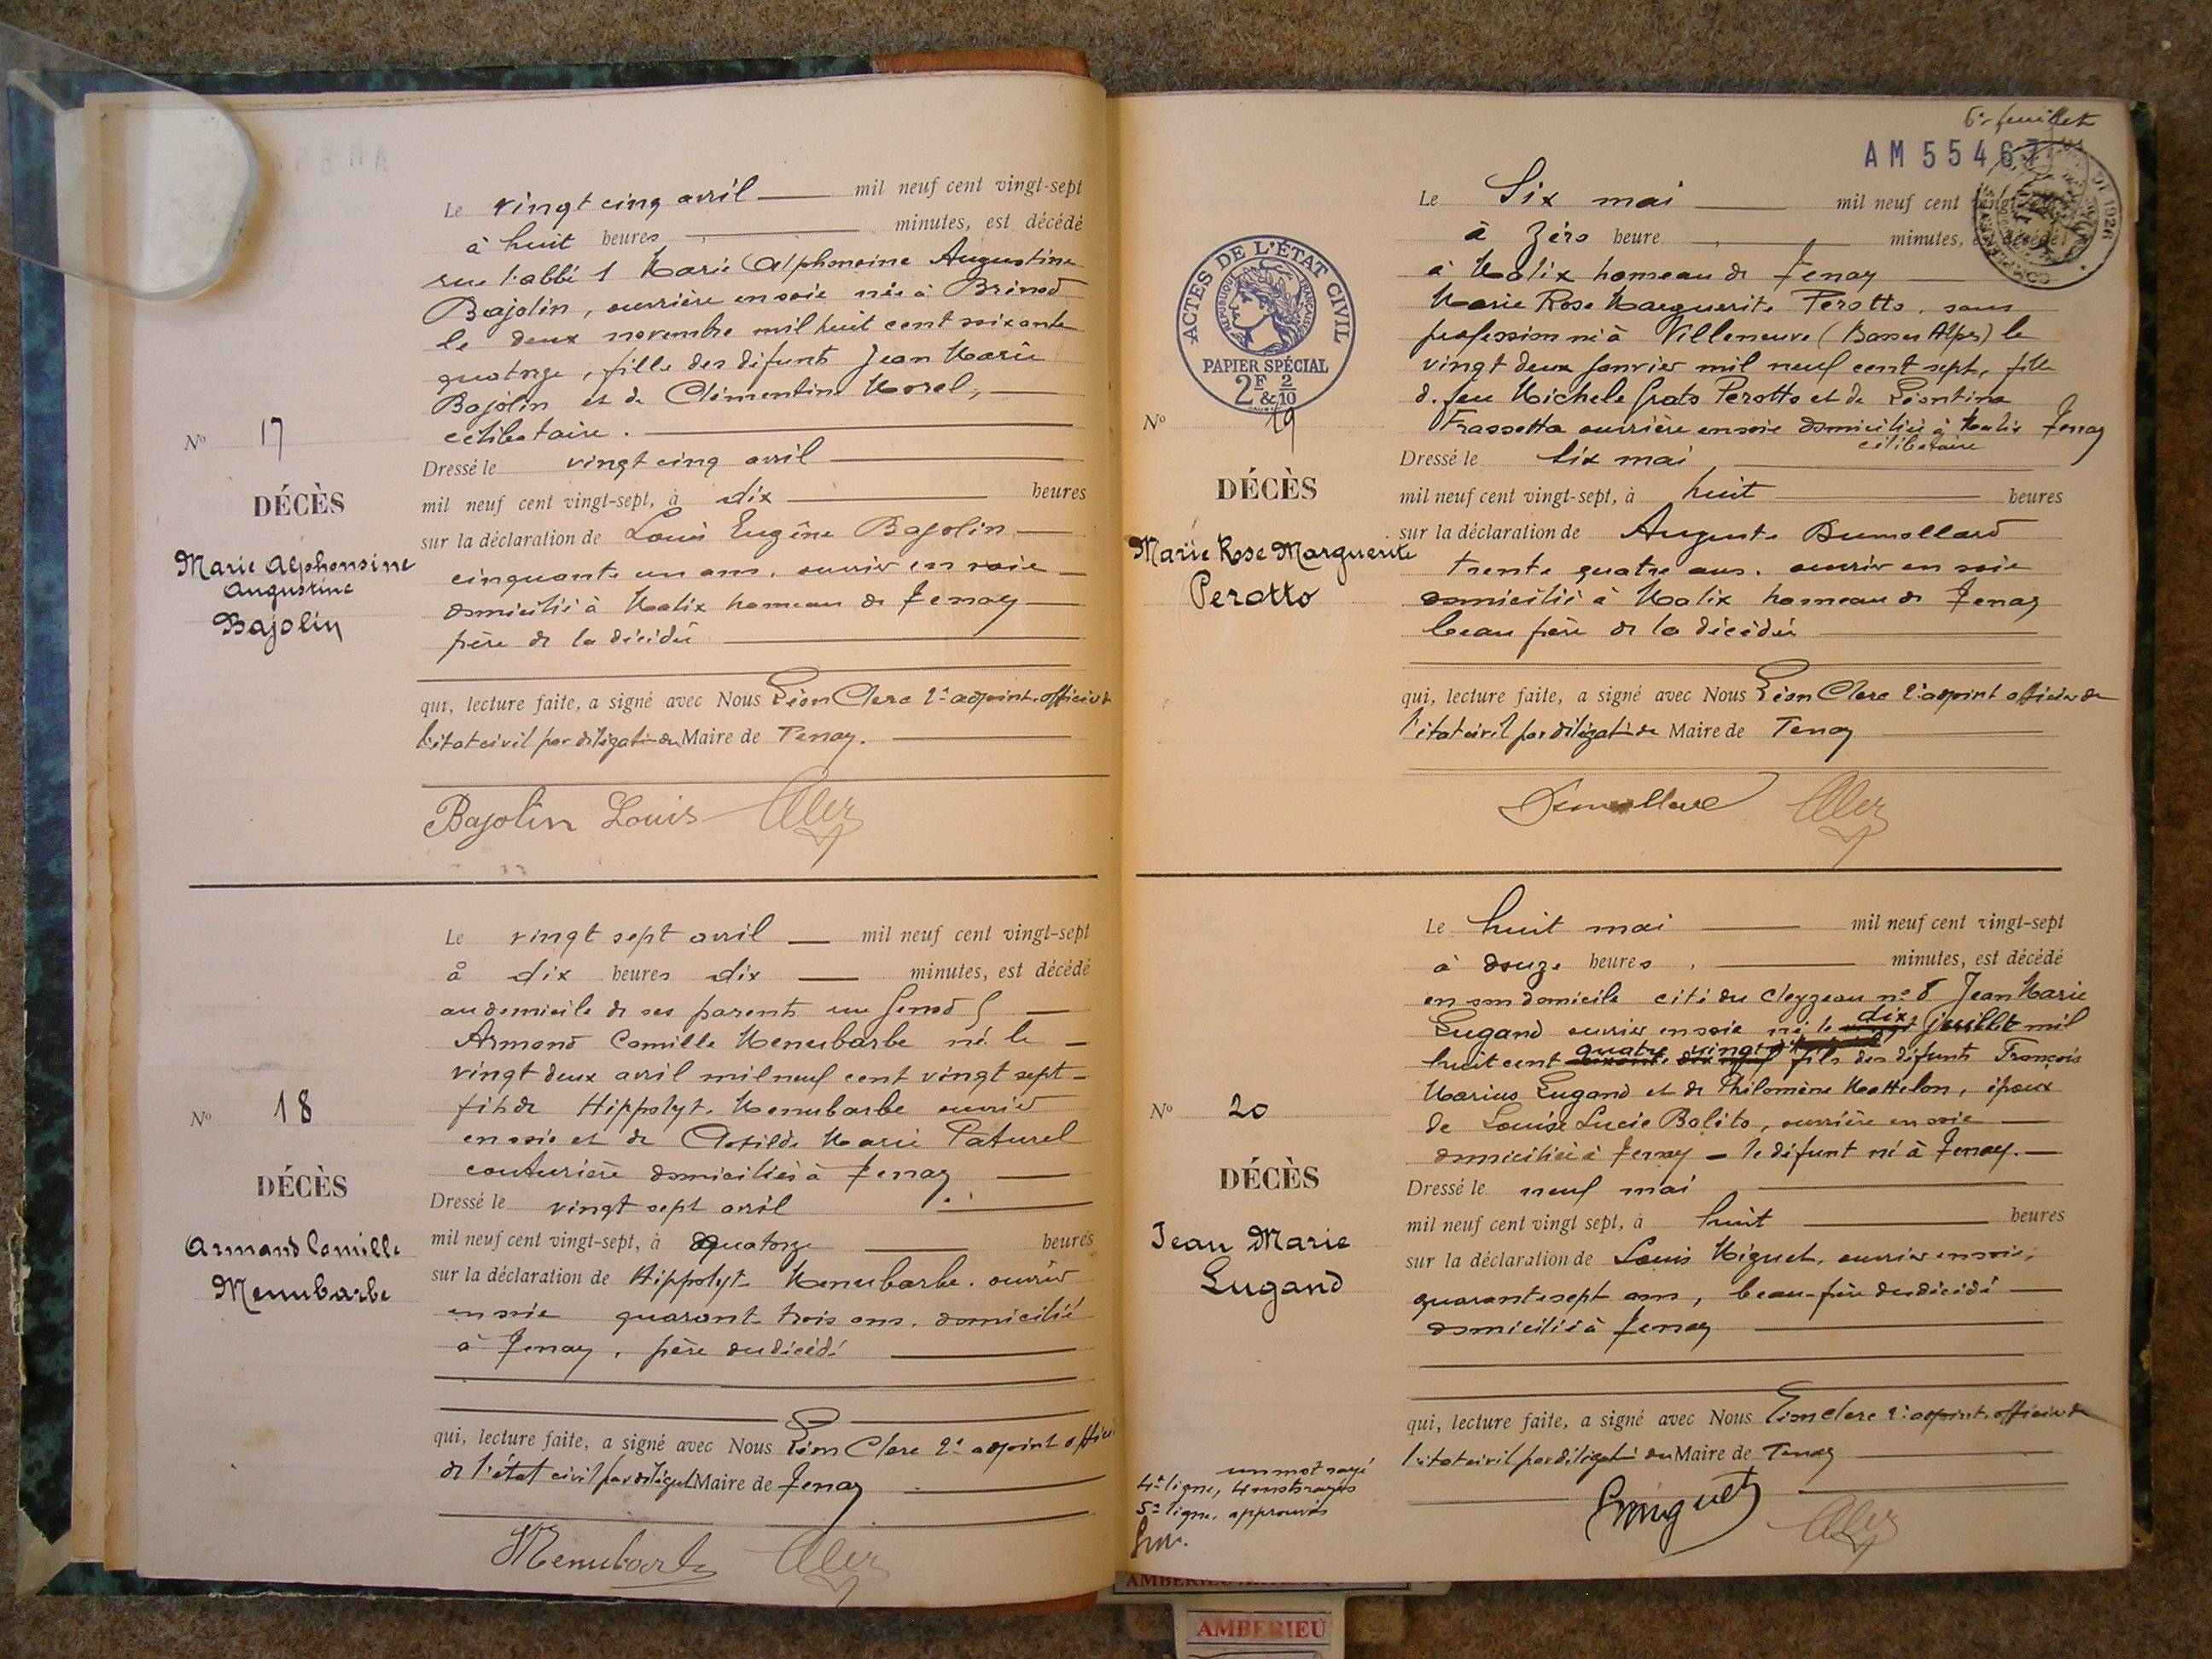 Le vingt cinq avril mil neuf cent vingt-sept
à huit heures minutes, est décédé
rue l'abbé 1 Marie Alphonsine Augustine
Bajolin, ouvrière en soie née à Brénod
le deux novembre mil huit cent soixante
quatorze, fille des défunts Jean Marie
Bajolin et de Clémentine Morel,
célibataire.
Nº 17
DÉCÈS
Marie Alphonsine
Augustine
Bajolin
Dressé le vingt cinq avril
mil neuf cent vingt-sept, à dix heures
sur la déclaration de Louis Eugène Bajolin
cinquante un ans, ouvrier en soie
domicilié à Malix hameau de Tenay
frère de la décédée
qui, lecture faite, a signé avec Nous Léon Clerc 2e adjoint officier de
l'état civil par délégation du Maire de Tenay.
Bajolin Louis Clerc
Le vingt sept avril mil neuf cent vingt-sept
à dix heures dix minutes, est décédé
au domicile de ses parents rue
Armand Camille Menubarbe né le
vingt deux avril mil neuf cent vingt sept
fils de Hippolyte Menubarbe ouvrier
en soie et de Clotilde Marie Paturel
couturière domiciliés à Tenay
Nº 18
DÉCÈS
Armand Camille
Menubarbe
Dressé le vingt sept avril
mil neuf cent vingt-sept, à quatorze heures
sur la déclaration de Hippolyte Menubarbe. ouvrier
en soie quarante trois ans. domicilié
à Tenay, père du décédé
qui, lecture faite, a signé avec Nous Léon Clerc 2e adjoint officier
de l'état civil par délégat Maire de Tenay
Menubarbe Clerc
6e feuillet
AM 55467
1926
ACTES DE L'ÉTAT CIVIL
RÉPUBLIQUE FRANÇAISE
PAPIER SPÉCIAL
2F & 2/10
Le Six mai mil neuf cent vingt-sept
à Zéro heure minutes, est décédé
à Malix hameau de Tenay
Marie Rose Marguerite Perotto, sans
profession née à Villeneuve (Basses Alpes) le
vingt deux janvier mil neuf cent sept, fille
de feu Michele Grato Perotto et de Léontina
Frassetta ouvrière en soie domiciliée à Malix Tenay
célibataire
Nº 19
DÉCÈS
Marie Rose Marguerite
Perotto
Dressé le Six mai
mil neuf cent vingt-sept, à huit heures
sur la déclaration de Auguste Dumollard
trente quatre ans. ouvrier en soie
domicilié à Malix hameau de Tenay
beau frère de la décédée
qui, lecture faite, a signé avec Nous Léon Clerc 2e adjoint officier de
l'état civil par délégation du Maire de Tenay
Dumollard Clerc
Le huit mai mil neuf cent vingt-sept
à douze heures minutes, est décédé
en son domicile cité du Cleyzeau nº 8 Jean Marie
Lugand ouvrier en soie né le dix juillet mil
huit cent quatre vingt fils des défunts François
Marius Lugand et de Philomène Mottelon, époux
de Louise Lucie Bolito, ouvrière en soie
domiciliée à Tenay - le défunt né à Tenay.
Nº 20
DÉCÈS
Jean Marie
Lugand
Dressé le neuf mai
mil neuf cent vingt sept, à huit heures
sur la déclaration de Louis Miguet, ouvrier en soie,
quarante sept ans, beau-frère du décédé
domicilié à Tenay
qui, lecture faite, a signé avec Nous Léon Clerc 2e adjoint officier de
l'état civil par délégation du Maire de Tenay
un mot rayé
4e ligne, 4 mots rayés
5e ligne, approuvés
Lm.
Lmiguet Clerc
AMBERIEU